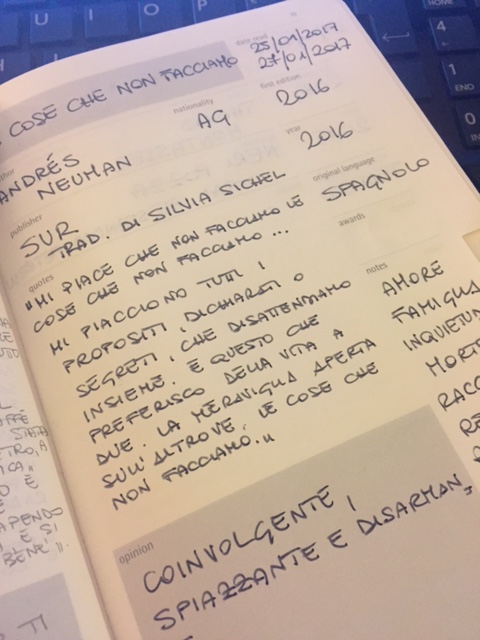 date read
25/01/2017
27/01/2017
COSE CHE NON FACCIAMO
nationality
AG
first edition
2016
ANDRÉS
NEUMAN
year
2016
publisher
SUR
TRAD. DI SILVIA SICHEL
original language
SPAGNOLO
awards
quotes
"MI PIACE CHE NON FACCIAMO LE
COSE CHE NON FACCIAMO ...
MI PIACCIONO TUTTI I
PROPOSITI, DICHIARATI O
SEGRETI, CHE DISATTENDIAMO
INSIEME. È QUESTO CHE
PREFERISCO DELLA VITA A
DUE. LA MERAVIGLIA APERTA
SULL'ALTROVE. LE COSE CHE
NON FACCIAMO."
notes
AMORE
FAMIGLIA
INQUIETUD
MORT
RACC
opinion
COINVOLGENTE,
SPIAZZANTE E DISARMAN
BENE".
TI
U
I
O
P
4
1
END
0